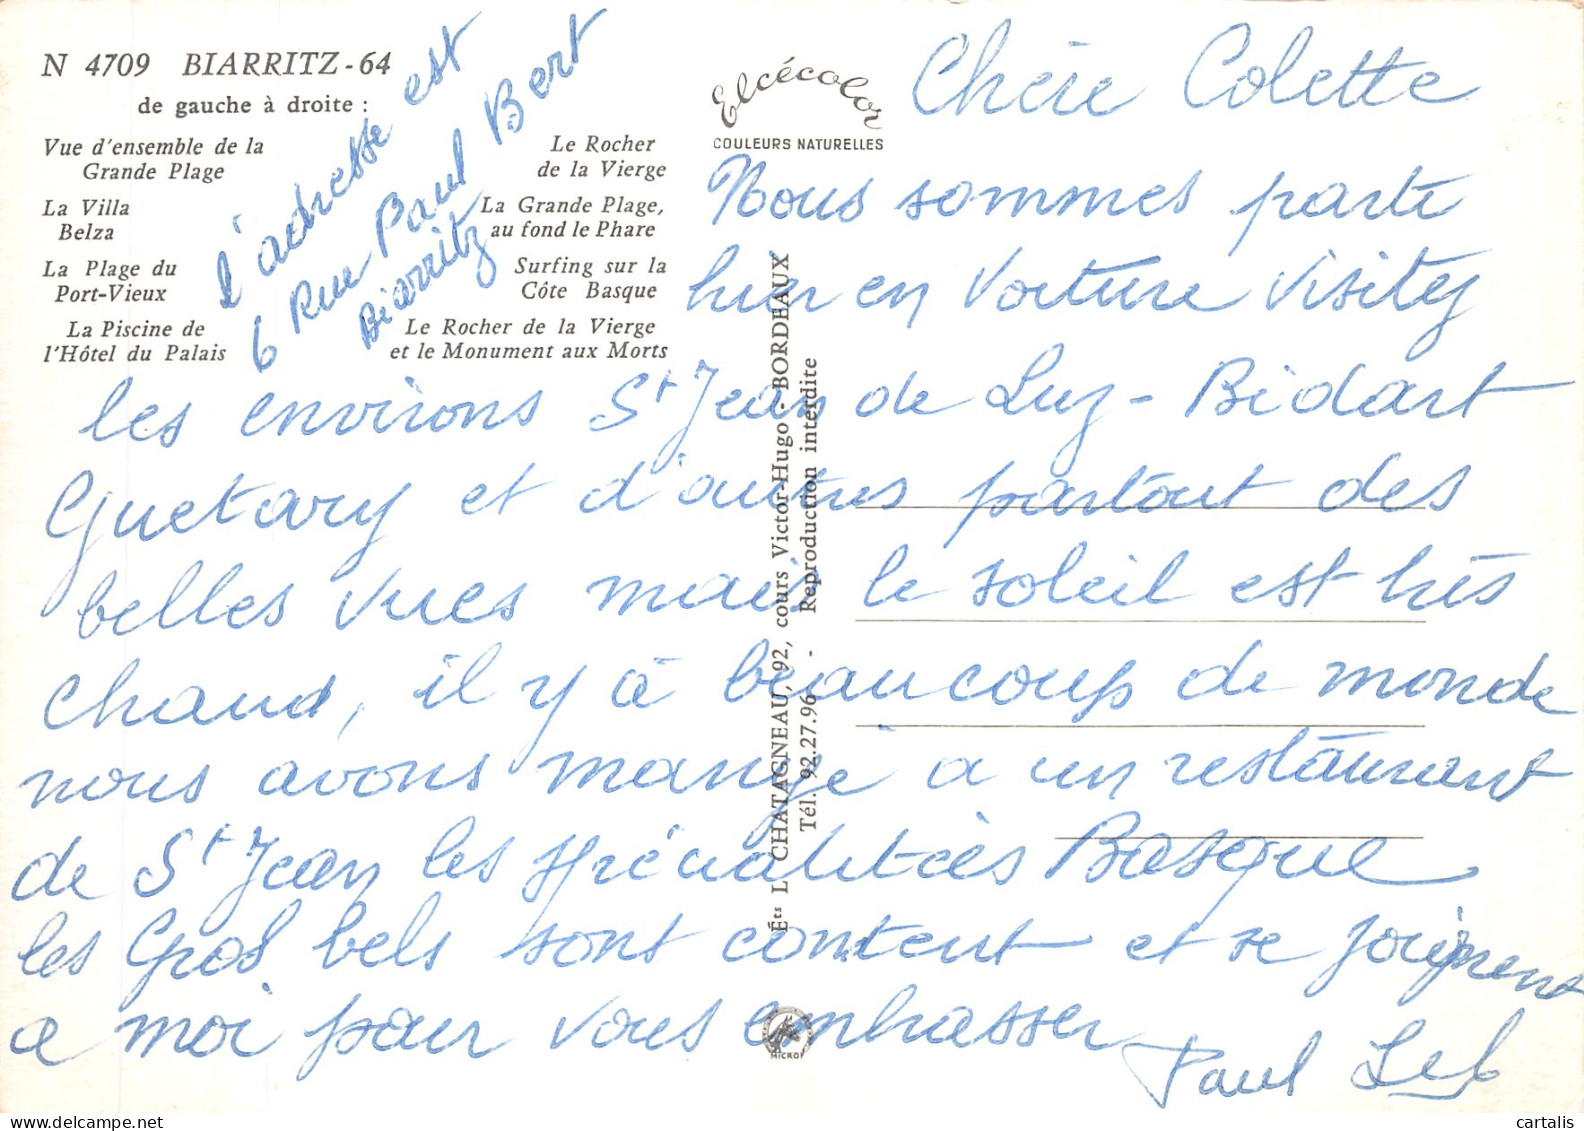 N 4709 BIARRITZ - 64
de gauche à droite :
Vue d'ensemble de la
Grande Plage
La Villa
Belza
La Plage du
Port-Vieux
La Piscine de
l'Hôtel du Palais
Le Rocher
de la Vierge
La Grande Plage,
au fond le Phare
Surfing sur la
Côte Basque
Le Rocher de la Vierge
et le Monument aux Morts
l'adresse est
6 Rue Paul Bert
Biarritz
Elcécolor
COULEURS NATURELLES
Éts L. CHATAGNEAU, 92, cours Victor-Hugo - BORDEAUX
Tél. 92.27.96 - Reproduction interdite
MICRO
Chère Colette
Nous sommes parti
hier en voiture visitey
les environs St Jean de Luz - Bidart
Guetary et d'autres partout des
belles vues mais le soleil est très
chaud, il y à beaucoup de monde
nous avons mangé a un restaurant
de St Jean les spécialitées Basque
les Gros bels sont content et se joignent
a moi pour vous embrasser
Paul
cartalis